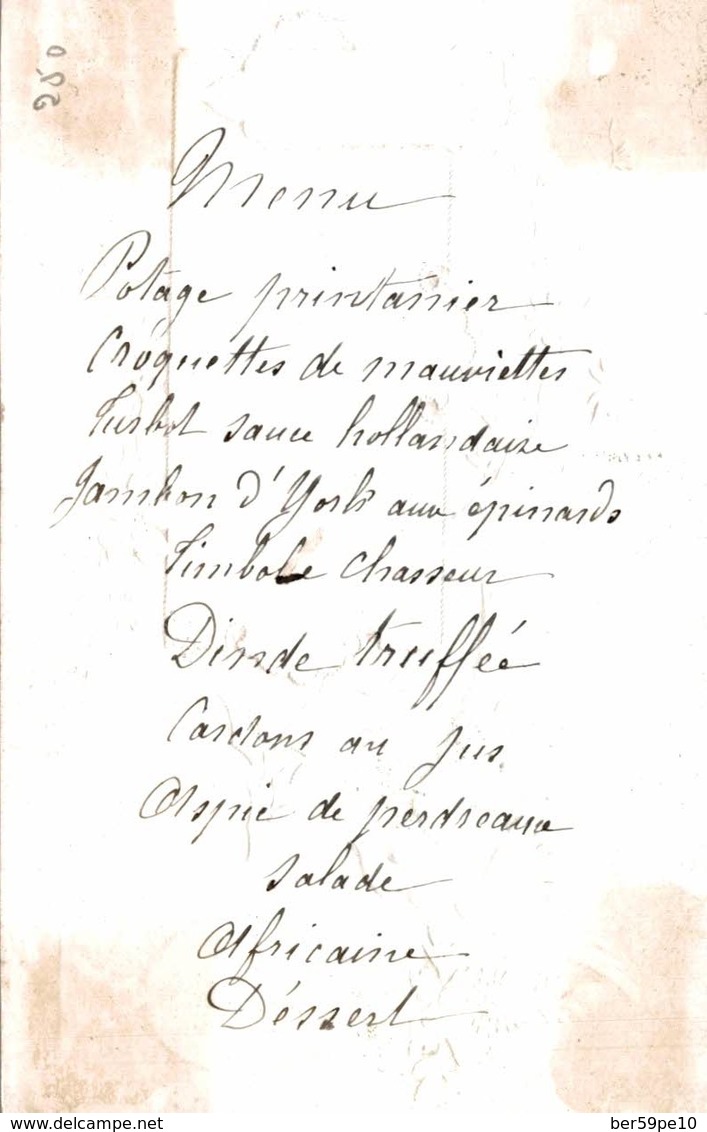 250
Menu
Potage printanier
Croquettes de mauviettes
Turbot sauce hollandaise
Jambon d'York aux épinards
Timbale chasseur
Dinde trufféé
Cardons au jus
Aspic de perdreaux
Salade
Africaine
Déssert
delcampe.net
ber59pe10